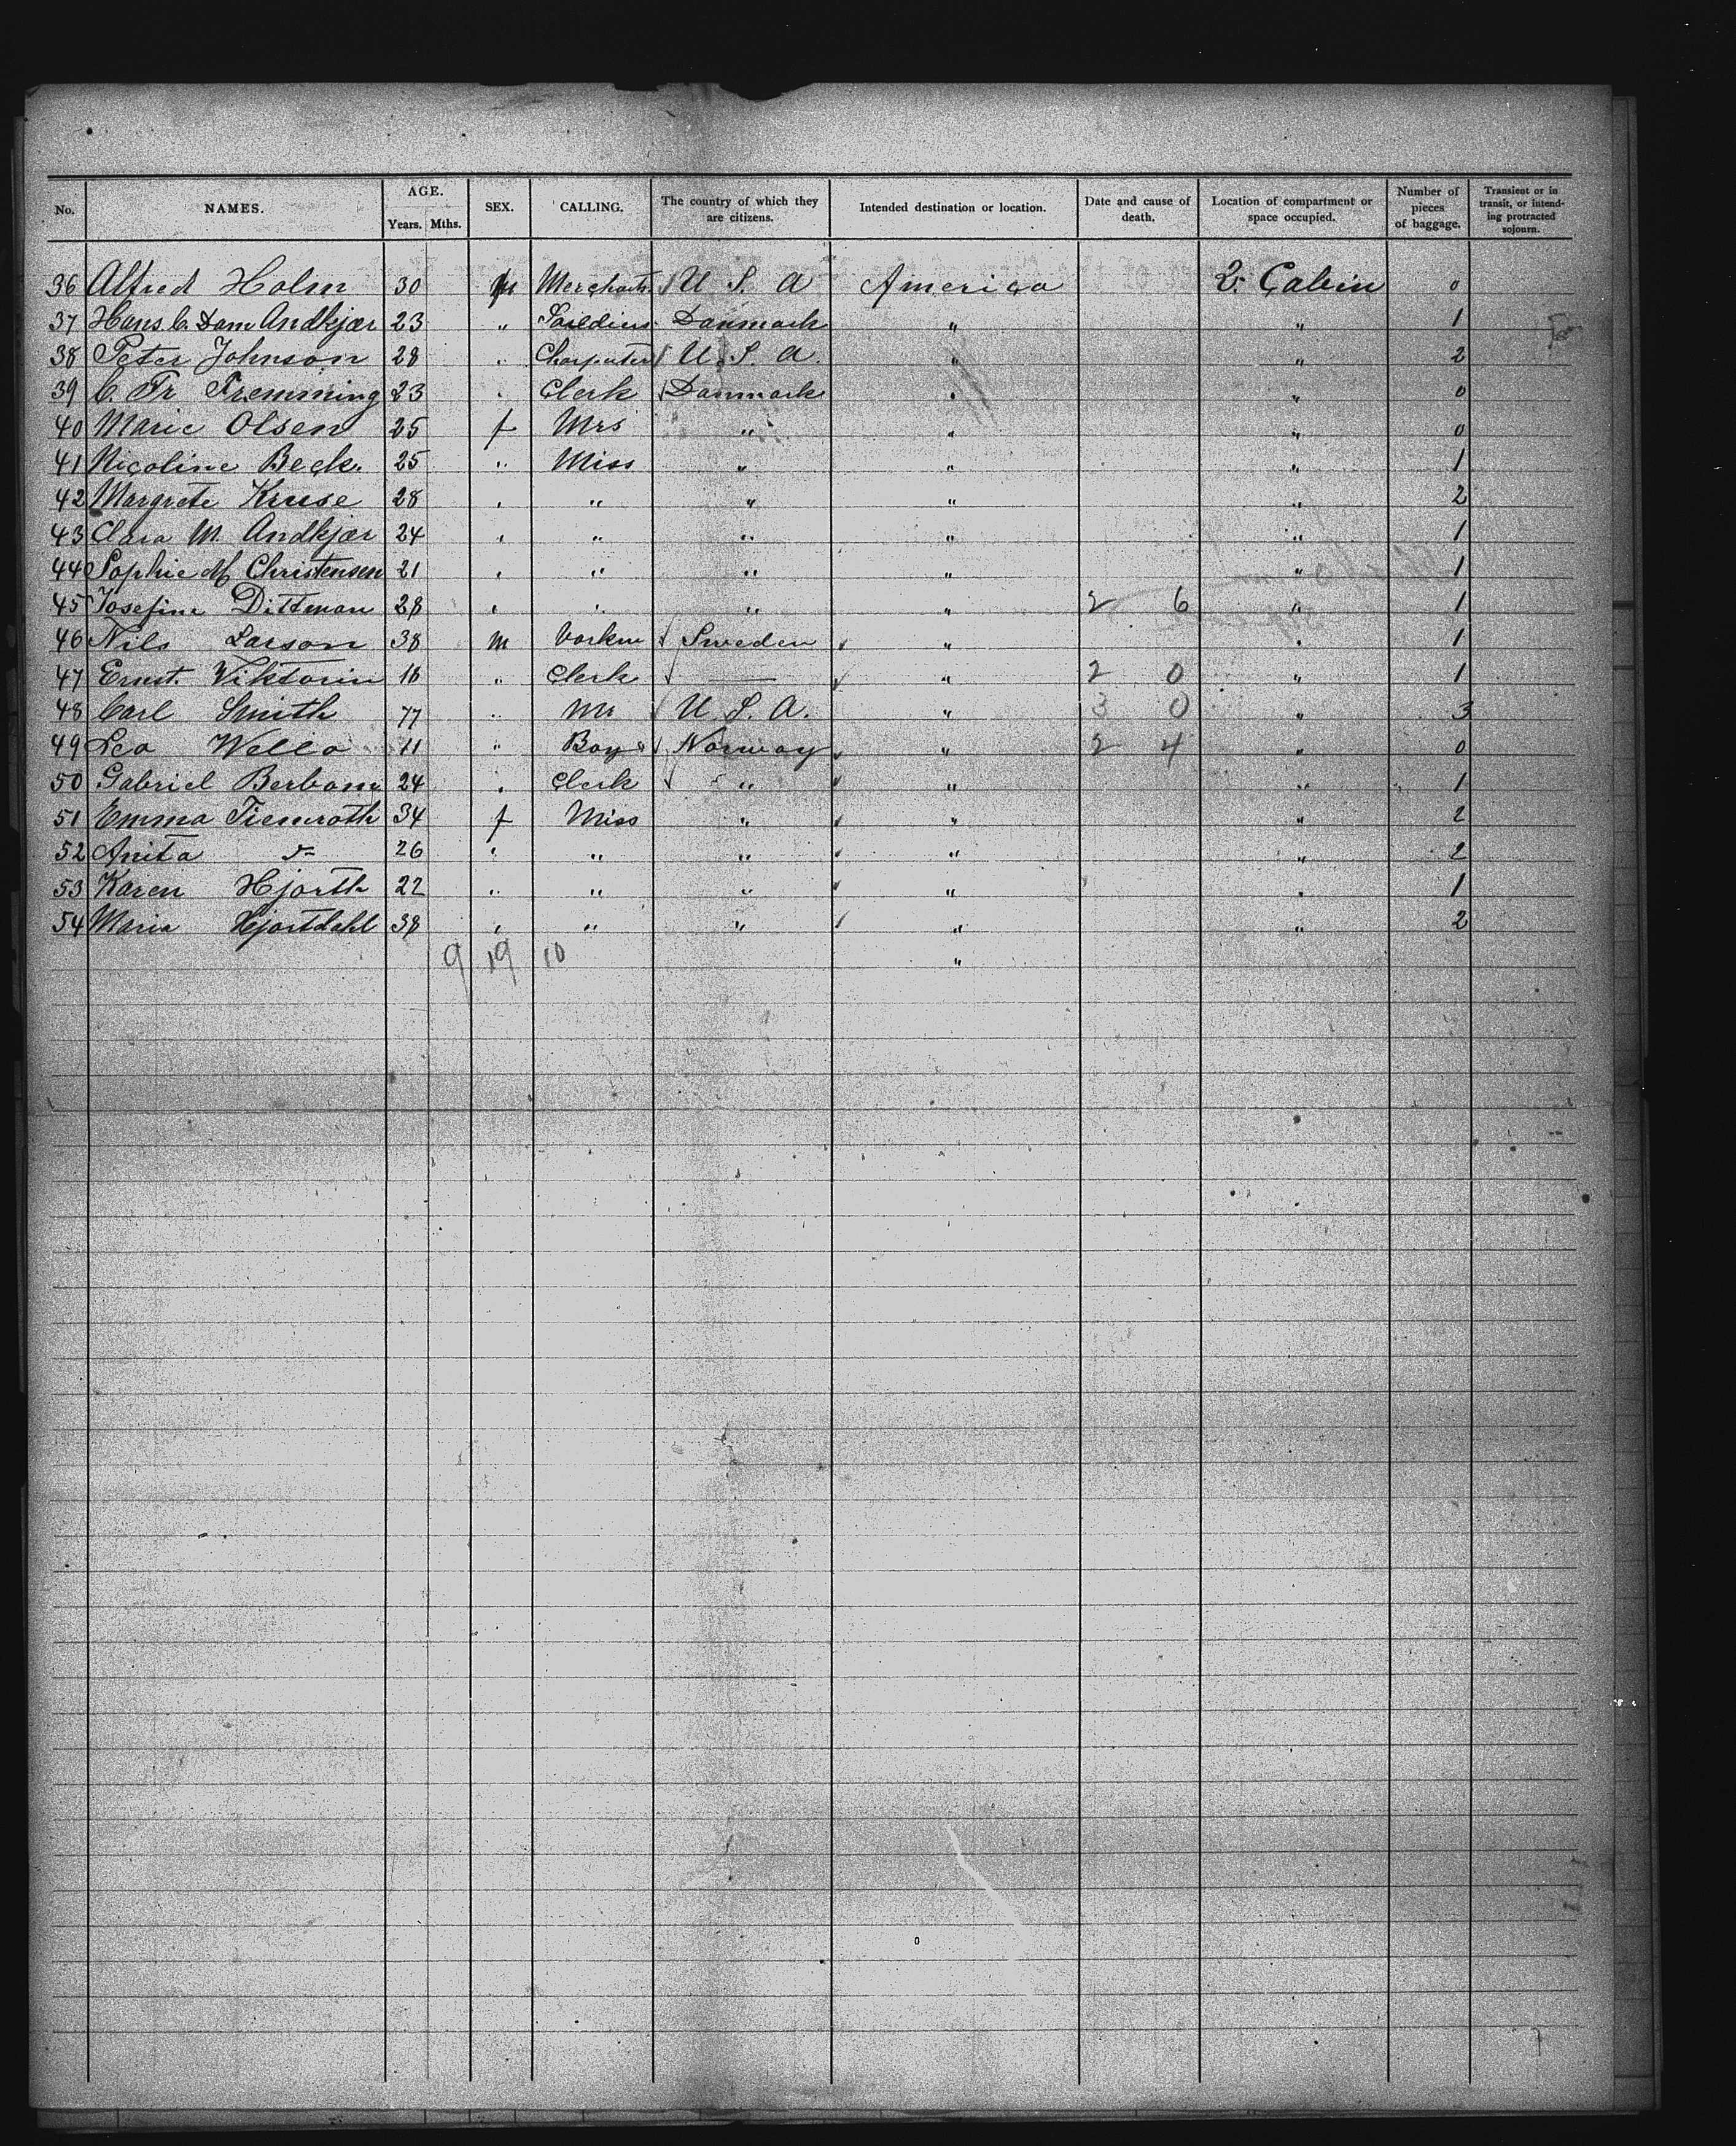 No. NAMES. AGE. Years. Mths. SEX. CALLING. The country of which they are citizens. Intended destination or location. Date and cause of death. Location of compartment or space occupied. Number of pieces of baggage. Transient or in transit, or intending protracted sojourn.
36 Alfred Holm 30 M Merchant U S. A America 2. Cabin 0
37 Hans C. Dam Andkjær 23 " Danmark " " 1
38 Peter Johnson 28 " U. S. A. " " 2
39 C. Fr Fremming 23 " Clerk Danmark " " 0
40 Marie Olsen 25 f Mrs " " " 0
41 Nicoline Beck. 25 " Miss " " " 1
42 Margrete Kruse 28 " " " " " 2
43 Clara M. Andkjær 24 " " " " " 1
44 Sophie M Christensen 21 " " " " " 1
45 Josefine Dittman 28 " " " " 2 6 " 1
46 Nils Larson 38 m Sweden " " 1
47 Ernst. Viktorin 16 " Clerk — " 2 0 " 1
48 Carl Smith 77 " Mr U. S. A. " 3 0 " 3
49 Leo 11 " Boy Norway " 2 4 " 0
50 Gabriel 24 " Clerk " " " 1
51 Emma Tiemroth 34 f Miss " " " 2
52 Anita 26 " " " " " 2
53 Karen Hjorth 22 " " " " " 1
54 Maria Hjortdahl 38 " " " " " 2
9 19 10 "